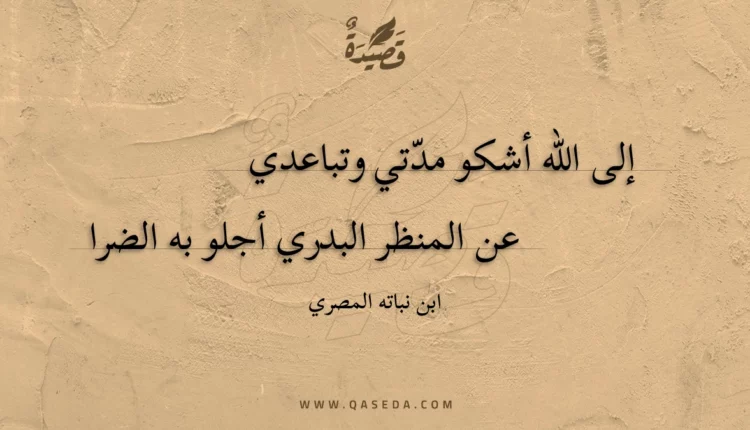 قَصِيدَةٌ
إلى الله أشكو مدّتي وتباعدي
عن المنظر البدري أجلو به الضرا
ابن نباته المصري
WWW.QASEDA.COM